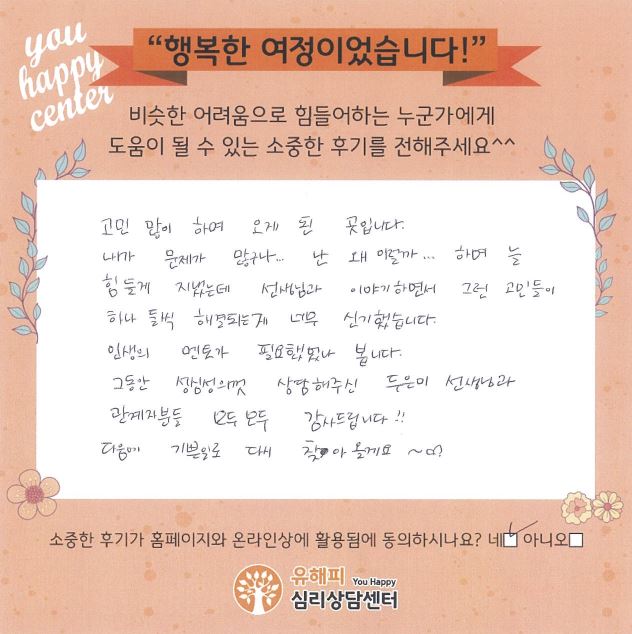 you
happy
center
“행복한 여정이었습니다!”
비슷한 어려움으로 힘들어하는 누군가에게
도움이 될 수 있는 소중한 후기를 전해주세요^^
고민 많이 하며 오게 된 곳입니다.
내가 문제가 많구나... 난 왜 이럴까... 하며 늘
힘들게 지냈는데 선생님과 이야기하면서 그런 고민들이
하나 둘씩 해결되는게 너무 신기했습니다.
인생의 멘토가 필요했었나 봅니다.
그동안 성심성의껏 상담해주신 두은미 선생님과
관계자분들 모두모두 감사드립니다!!
다음에 기쁜일로 다시 찾아 올게요 ~
소중한 후기가 홈페이지와 온라인상에 활용됨에 동의하시나요? 네 아니오
유해피 You Happy
심리상담센터